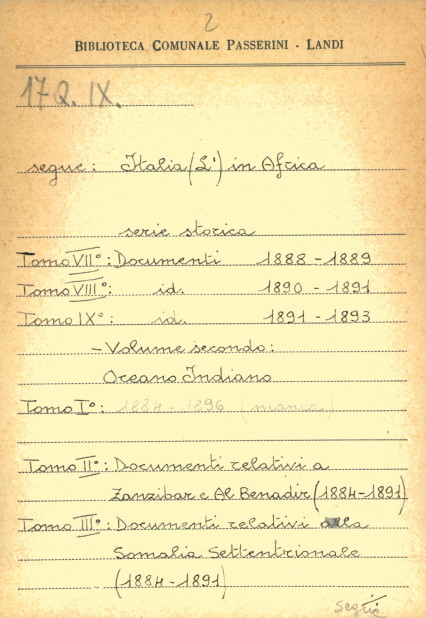 2
BIBLIOTECA COMUNALE PASSERINI - LANDI
17 Q. IX.
segue: Italia (L') in Africa
serie storica
Tomo VII°: Documenti 1888 - 1889
Tomo VIII°: id. 1890 - 1891
Tomo IX°: id. 1891 - 1893
- Volume secondo:
Oceano Indiano
Tomo I°: 1884 - 1896 (manca)
Tomo II°: Documenti relativi a
Zanzibar e Al Benadir (1884-1891)
Tomo III°: Documenti relativi alla
Somalia Settentrionale
(1884-1891)